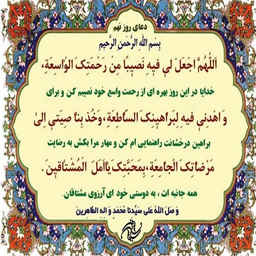 دعای روز نهم
بِسْمِ اللَّهِ الرَّحْمنِ الرَّحِیمِ
اَللّهُمَّ اجْعَلْ لی فیهِ نَصیباً مِن رَحْمَتِکَ الوْاسِعَةِ،
خدایا در این روز بهره ای از رحمت واسع خود نصیبم کن و برای
وَ اهْدِنی فیهِ لِبَراهینِکَ السّاطِعَةِ، وَخُذْ بِنا صِیَتی اِلیٰ
براهین درخشانت راهنمایی ام کن و مهار مرا بکش به رضایت
مَرْضاتِکَ الْجامِعَةِ، بِمَحَبَّتِکَ یااَمَلَ الْمُشْتاقینَ.
همه جانبه ات ، به دوستی خود ای آرزوی مشتاقان.
وَ صَلَ اللهُ عَلی سَیّدنا مُحَمَدٍ وَ الِهِ الطاهِرین